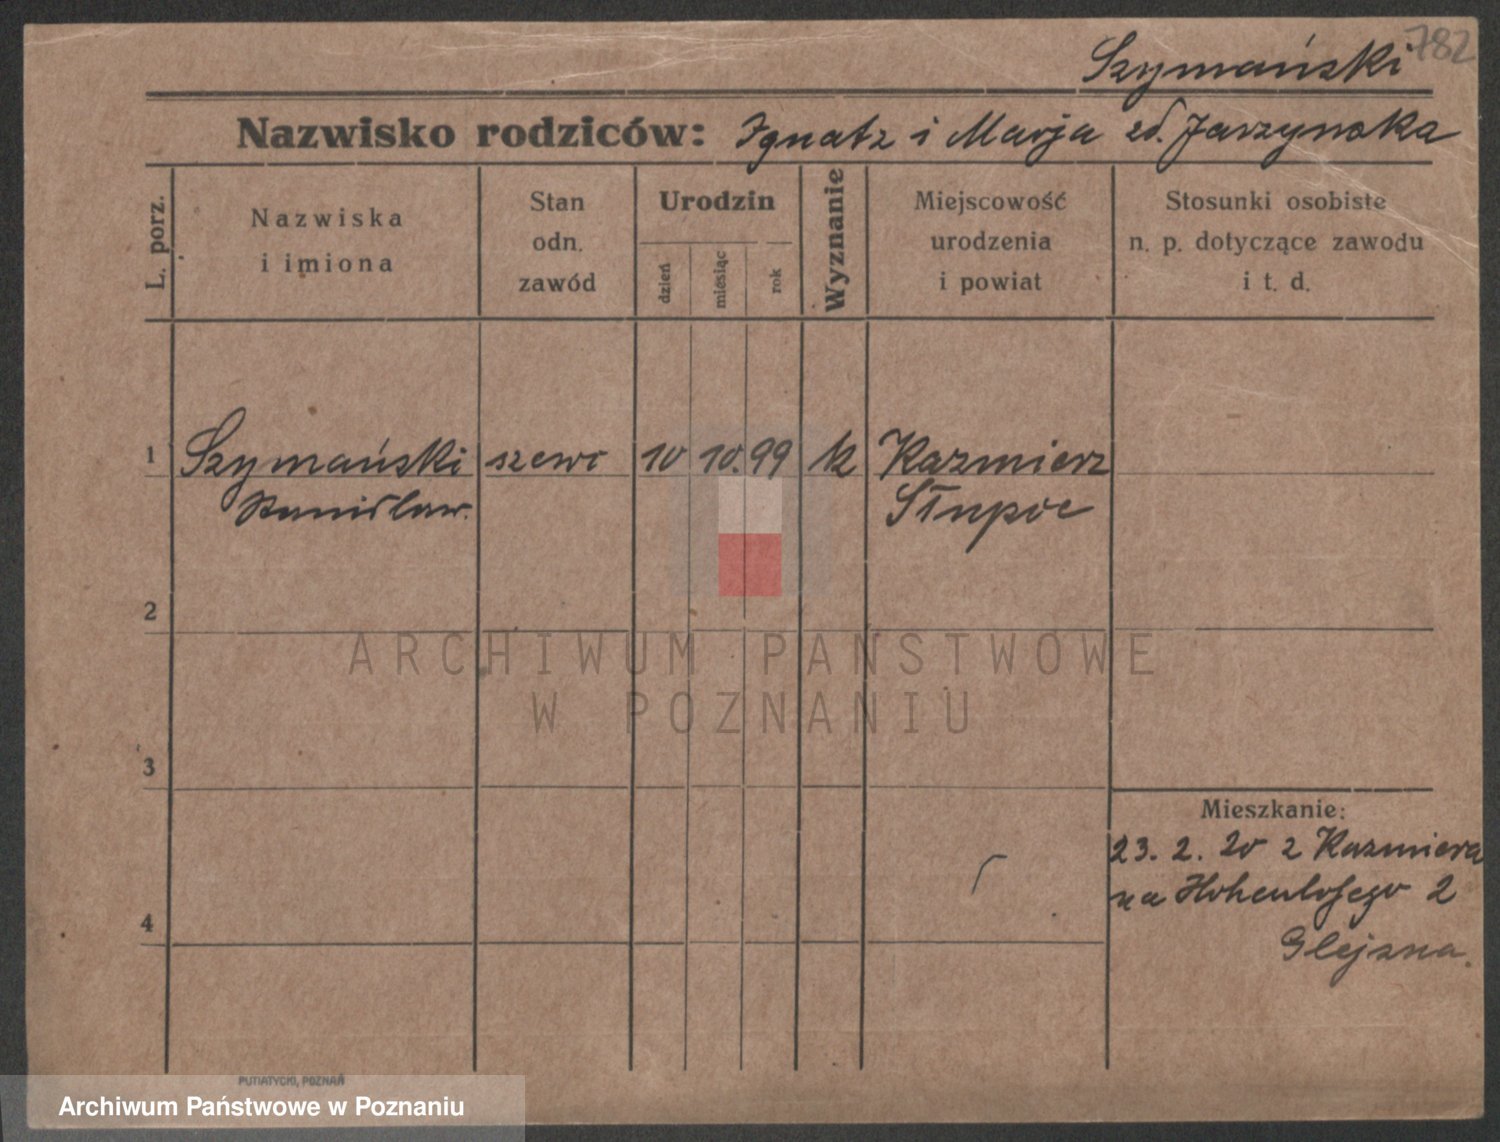 782
Szymański
Nazwisko rodziców: Ignatz i Marja zd. Jarzynska
L. porz.
Nazwiska
i imiona
Stan
odn.
zawód
Urodzin
dzień
miesiąc
rok
Wyznanie
Miejscowość
urodzenia
i powiat
Stosunki osobiste
n. p. dotyczące zawodu
i t. d.
1 Szymański szewc 10 10. 99 k Kazmierz
Stanisław.
2
3
4
Mieszkanie:
23. 2. 20 z Kazmierza
na 2
PUTIATYCKI, POZNAŃ
ARCHIWUM PAŃSTWOWE
W POZNANIU
Archiwum Państwowe w Poznaniu